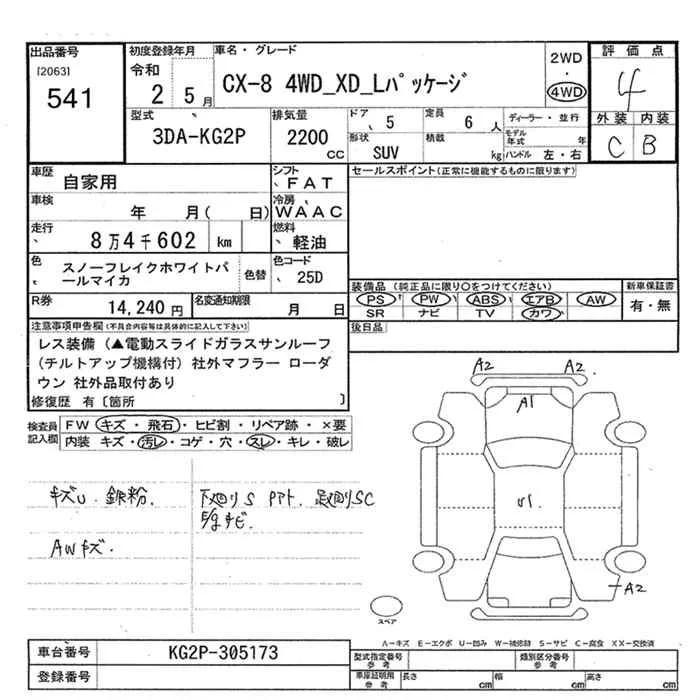 出品番号
[2063]
541
初度登録年月
令和
2 5月
車名・グレード
CX-8 4WD_XD_Lパッケージ
2WD
・
4WD
評価点
4
外装 内装
C B
型式
3DA-KG2P
排気量
2200
CC
ドア
5
定員
6 人
ディーラー・並行
形状
SUV
積載
kg
モデル年式 年
ハンドル 左・右
車歴
自家用
シフト
FAT
セールスポイント(正常に機能するものに限ります)
車検
年 月( 日)
冷房
WAAC
走行
8万4千602 km
燃料
軽油
色
スノーフレイクホワイトパ
ールマイカ
色替
色コード
25D
装備品 (純正品に限り○をつけてください)
新車保証書
PS PW ABS エアB AW
SR ナビ TV カワ
有・無
R券
14,240円
名変通知期限
月 日
後日品
注意事項申告欄(不具合内容等は具体的に記入して下さい)
レス装備(▲電動スライドガラスサンルーフ
(チルトアップ機構付)社外マフラー ローダ
ウン 社外品取付あり
修復歴 有〔箇所 〕
検査員
記入欄
FW キズ・飛石・ヒビ割・リペア跡・×要
内装 キズ・汚レ・コゲ・穴・スレ・キレ・破レ
キズU 鉄粉
AWキズ.
下廻りS
足廻りSC
A2
A2
A1
U1
A2
スペア
A−キズ E−エクボ U−凹み W−補修跡 S−サビ C−腐食 XX−交換済
車台番号
KG2P-305173
登録番号
型式指定番号
参考
類別区分番号
参考
車庫証明用
参考
長さ cm
幅 cm
高さ cm